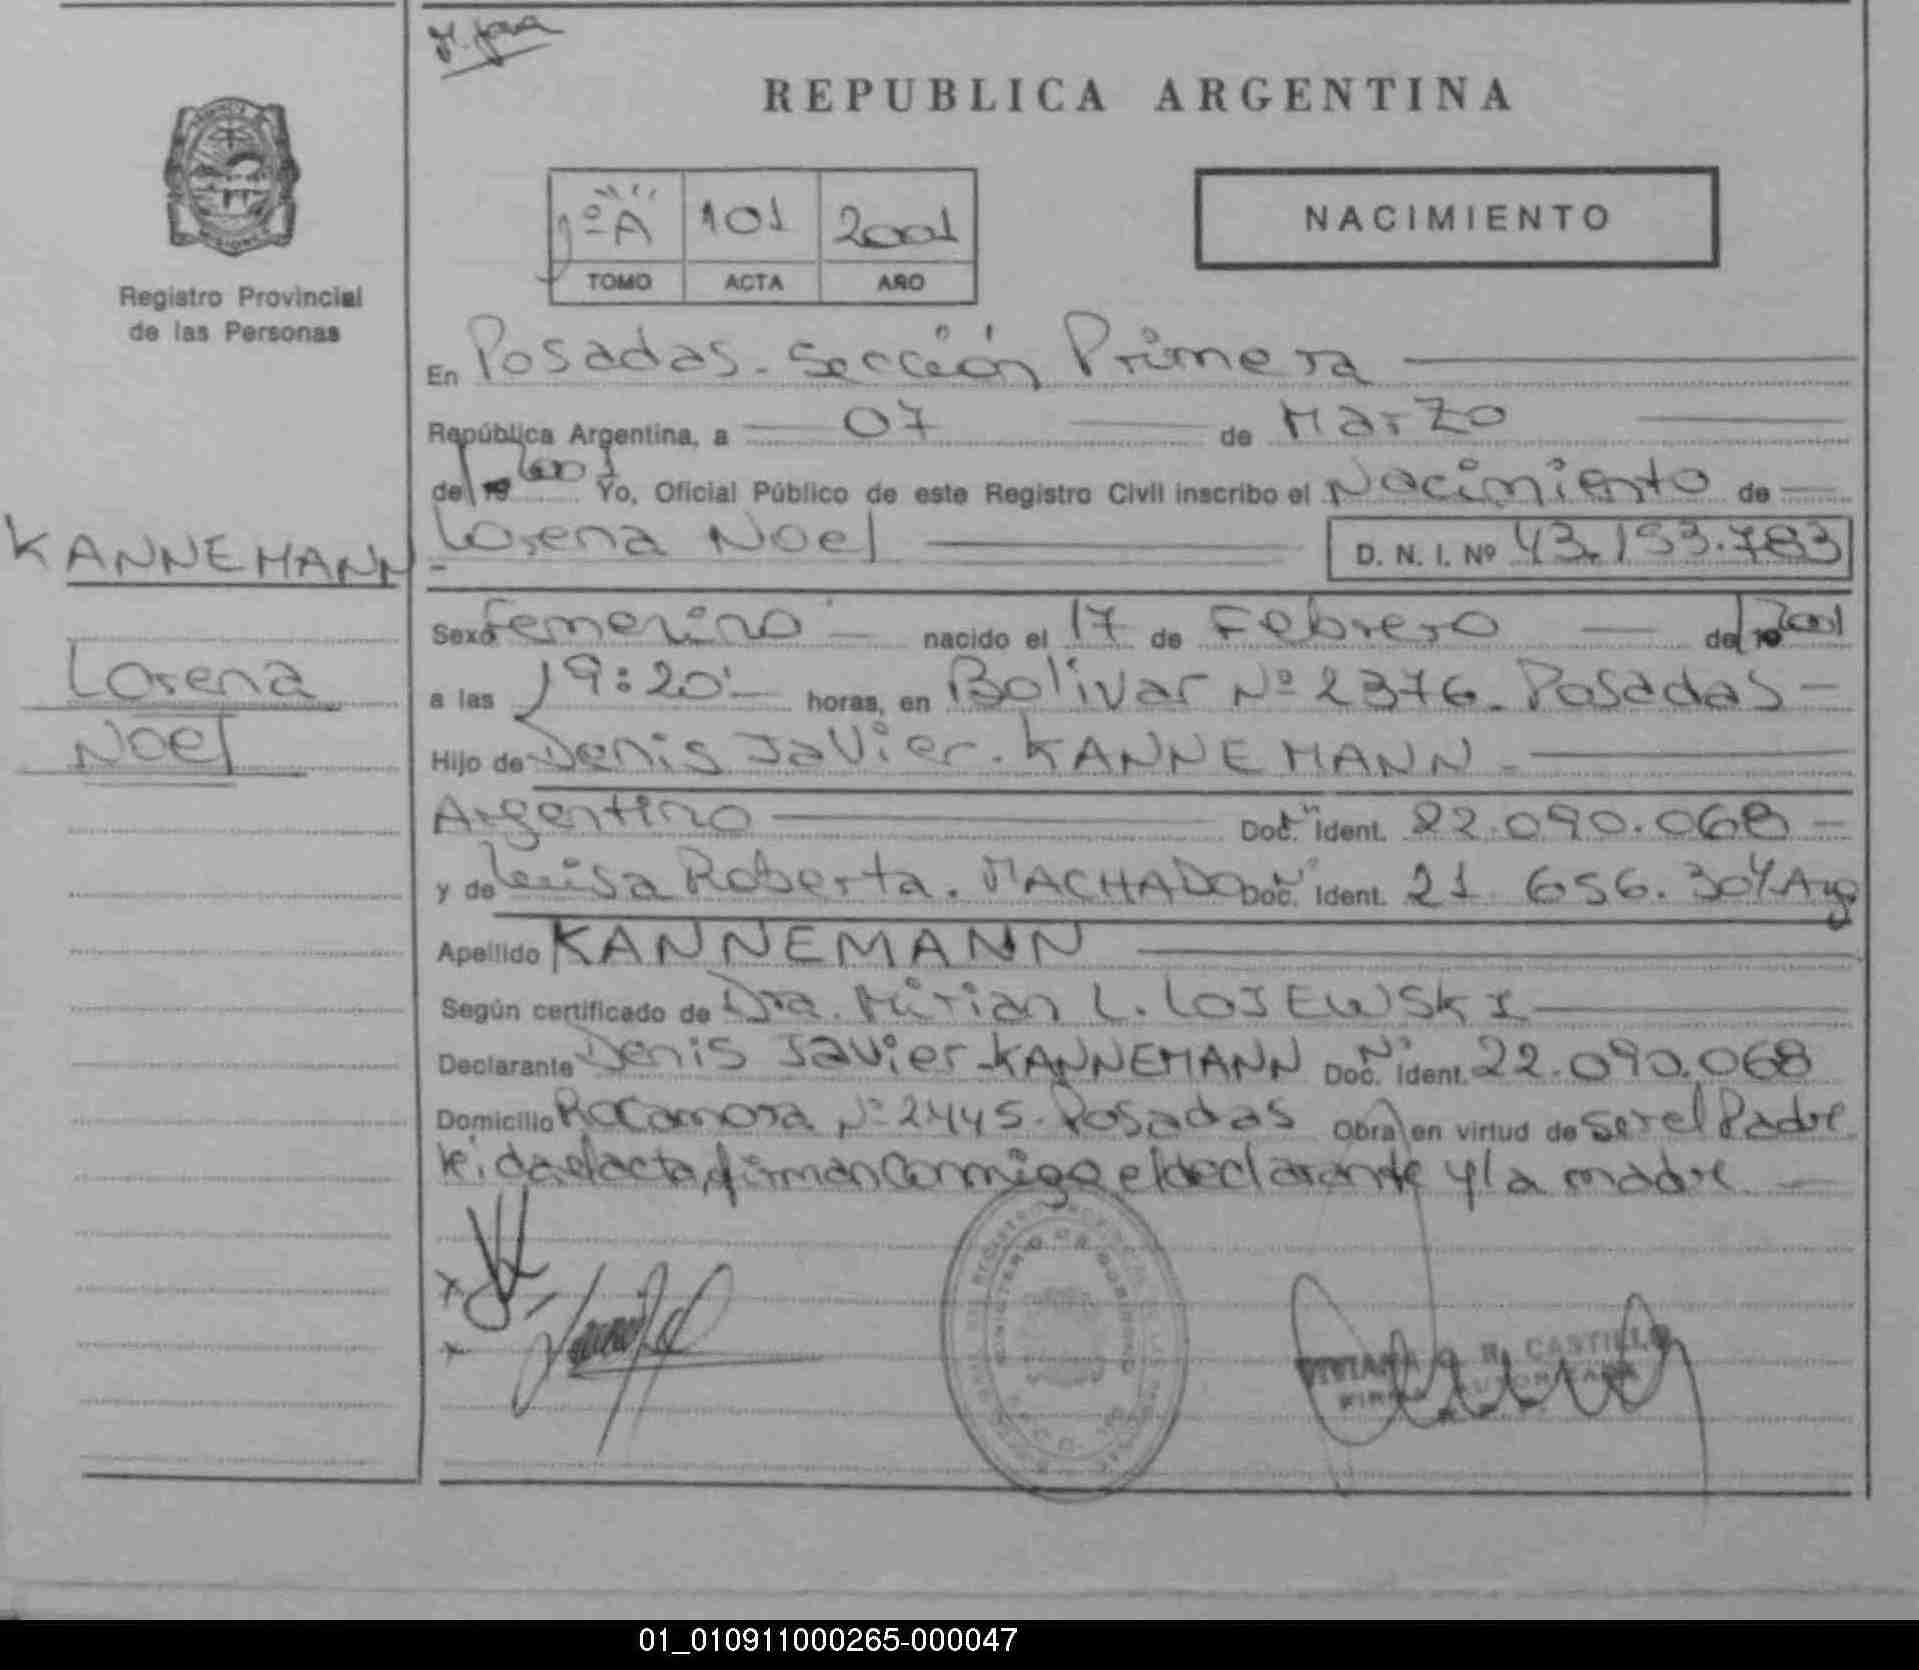 REPUBLICA ARGENTINA
1ºA 101 2001
TOMO ACTA AÑO
NACIMIENTO
Registro Provincial
de las Personas
KANNEMANN
Lorena
Noel
En Posadas. Sección Primera
República Argentina, a 07 de Marzo
de 19 2001 Yo, Oficial Público de este Registro Civil inscribo el Nacimiento de
Lorena Noel D. N. I. Nº 43.153.783
Sexo Femenino nacido el 17 de Febrero de 19 2001
a las 19:20 horas, en Bolivar Nº 2376. Posadas
Hijo de Denis Javier. KANNEMANN.
Argentino Doc. Nº Ident. 22.090.068
y de Luisa Roberta. MACHADO Doc. Nº Ident. 21.656.304 Arg
Apellido KANNEMANN
Según certificado de Dra. Mirian L. LOJEWSKI
Declarante Denis Javier KANNEMANN Doc. Nº Ident. 22.090.068
Domicilio Rocamora Nº 2445. Posadas Obra en virtud de ser el Padre
leida el acta, firman conmigo el declarante y la madre
VIVIANA R. CASTILLO
FIRMA AUTORIZADA
01_010911000265-000047